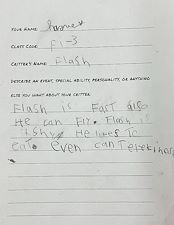 YOUR NAME:
CLASS CODE: F1-3
CRITTER'S NAME: Flash
DESCRIBE AN EVENT, SPECIAL ABILITY, PERSONALITY, OR ANYTHING
ELSE YOU WANT ABOUT YOUR CRITTER.
Flash is Fast also
He can Fly. Flash is
shy. He likes to
eat. even can